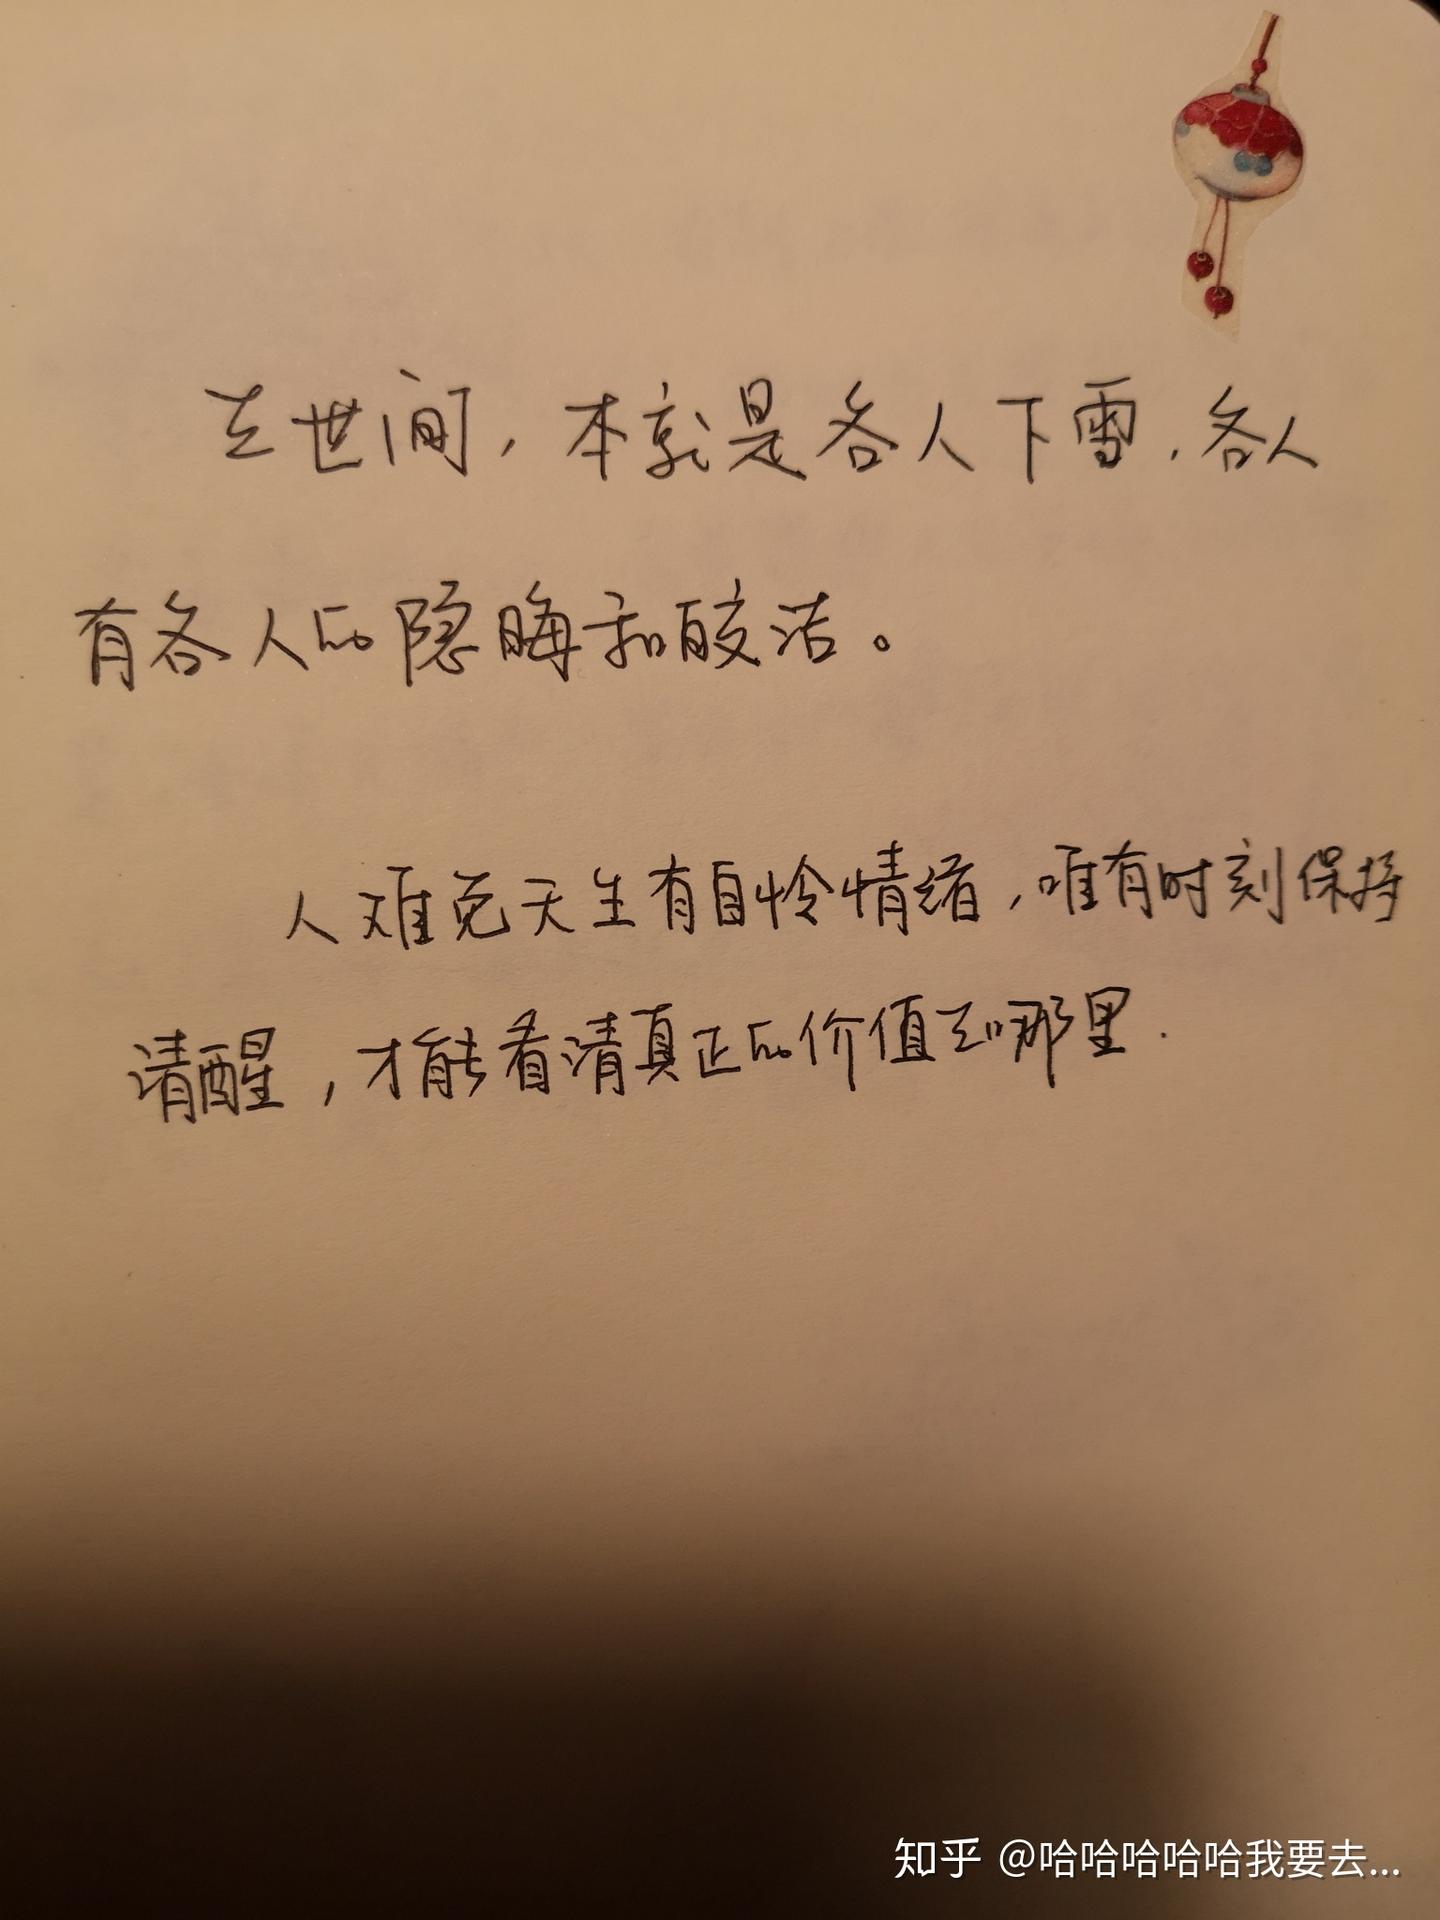 在世间，本就是各人下雪，各人
有各人的隐晦和皎洁。
人难免天生有自怜情绪，唯有时刻保持
清醒，才能看清真正的价值在哪里.
知乎 @哈哈哈哈哈我要去...